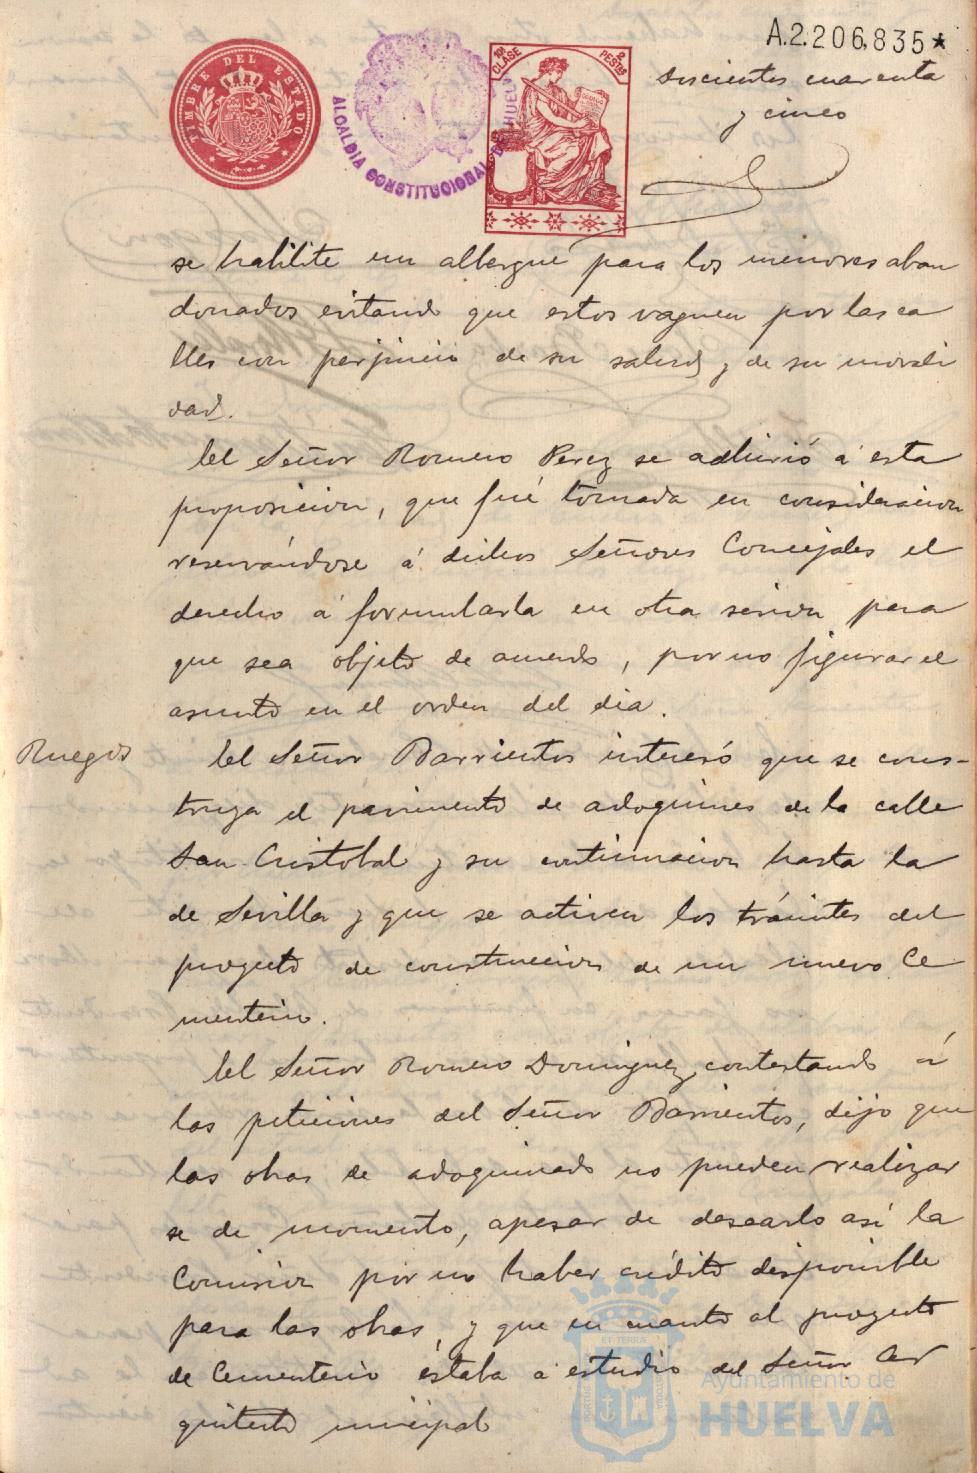 A.2.206,835★
TIMBRE DEL ESTADO
ALCALDIA CONSTITUCIONAL DE HUELVA
10ª CLASE
2 PESETAS
doscientos cuarenta
y cinco
se habilite un albergue para los menores aban
donados evitando que estos vaguen por las ca
lles con perjuicio de su salud y de su morali
dad.
El Señor Romero Perez se adhirió á esta
proposicion, que fué tomada en consideracion
reservándose á dichos Señores Concejales el
derecho á formularla en otra sesion para
que sea objeto de acuerdo, por no figurar el
asunto en el orden del dia.
Ruegos
El Señor Barrientos interesó que se cons-
truya el pavimento de adoquines de la calle
San Cristobal y su continuacion hasta la
de Sevilla y que se activen los trámites del
proyecto de construccion de un nuevo Ce
menterio.
El Señor Romero Dominguez, contestando á
las peticiones del Señor Barrientos, dijo que
las obras de adoquinado no pueden realizar
se de momento, apesar de desearlo así la
Comision por no haber crédito disponible
para las obras, y que en cuanto al proyecto
de Cementerio éstaba á estudio del Señor Ar
quitecto municipal
Ayuntamiento de
HUELVA